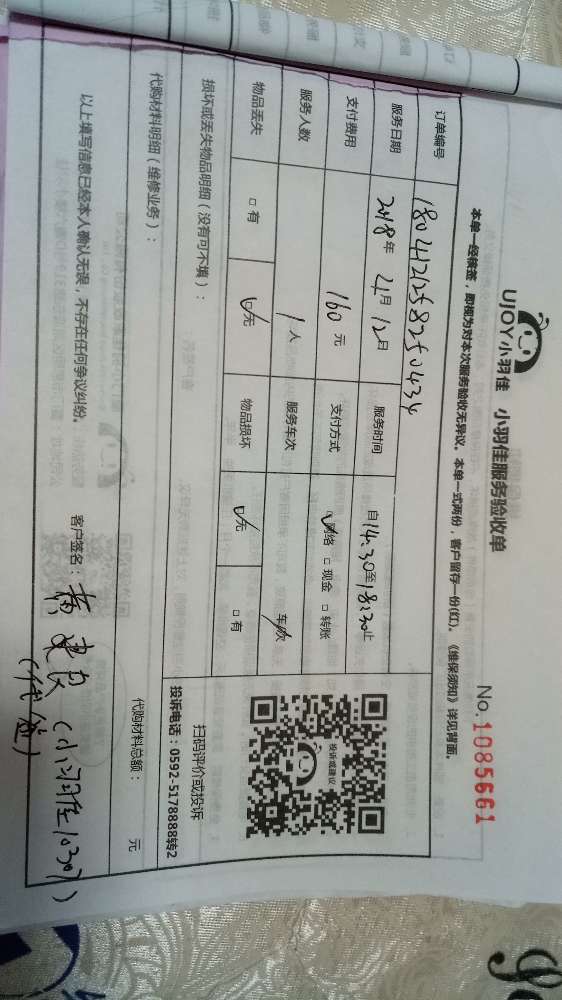 UJOY小羽佳 小羽佳服务验收单
No.1085661
本单一经核签，即视为对本次服务验收无异议。本单一式两份，客户留存一份(红)。《维保须知》详见背面。
订单编号 1804121258250434
服务日期 2018年 4月 12日 服务时间 自14:30至18:30止
支付费用 160元 支付方式 ☑网络 □现金 □转账
服务人数 1人 服务车次 车次
物品丢失 □有 ☑无 物品损坏 ☑无 □有
投诉或建议
扫码评价或投诉
投诉电话：0592-5178888转2
损坏或丢失物品明细（没有可不填）：
代购材料明细（维修业务）： 代购材料总额： 元
以上填写信息已经本人确认无误，不存在任何争议纠纷。 客户签名： 建良（小羽佳10307）
（代签）